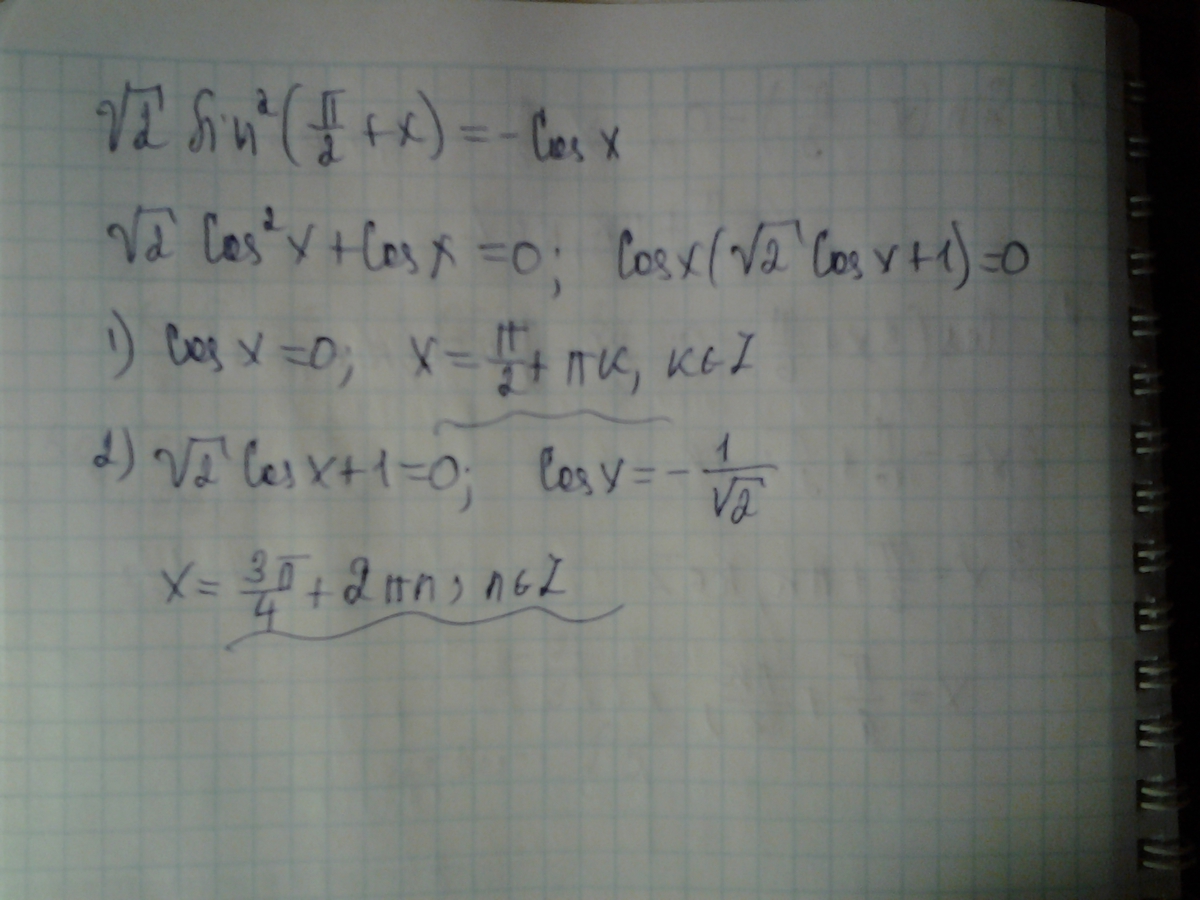 √2 sin²(π/2 + x) = - Cos x
√2 Cos²x + Cos x = 0; Cos x(√2 Cos x + 1) = 0
1) Cos x = 0; x = π/2 + πк, к ∈ Z
2) √2 Cos x + 1 = 0; Cos x = - 1/√2
x = 3π/4 + 2πn, n ∈ Z